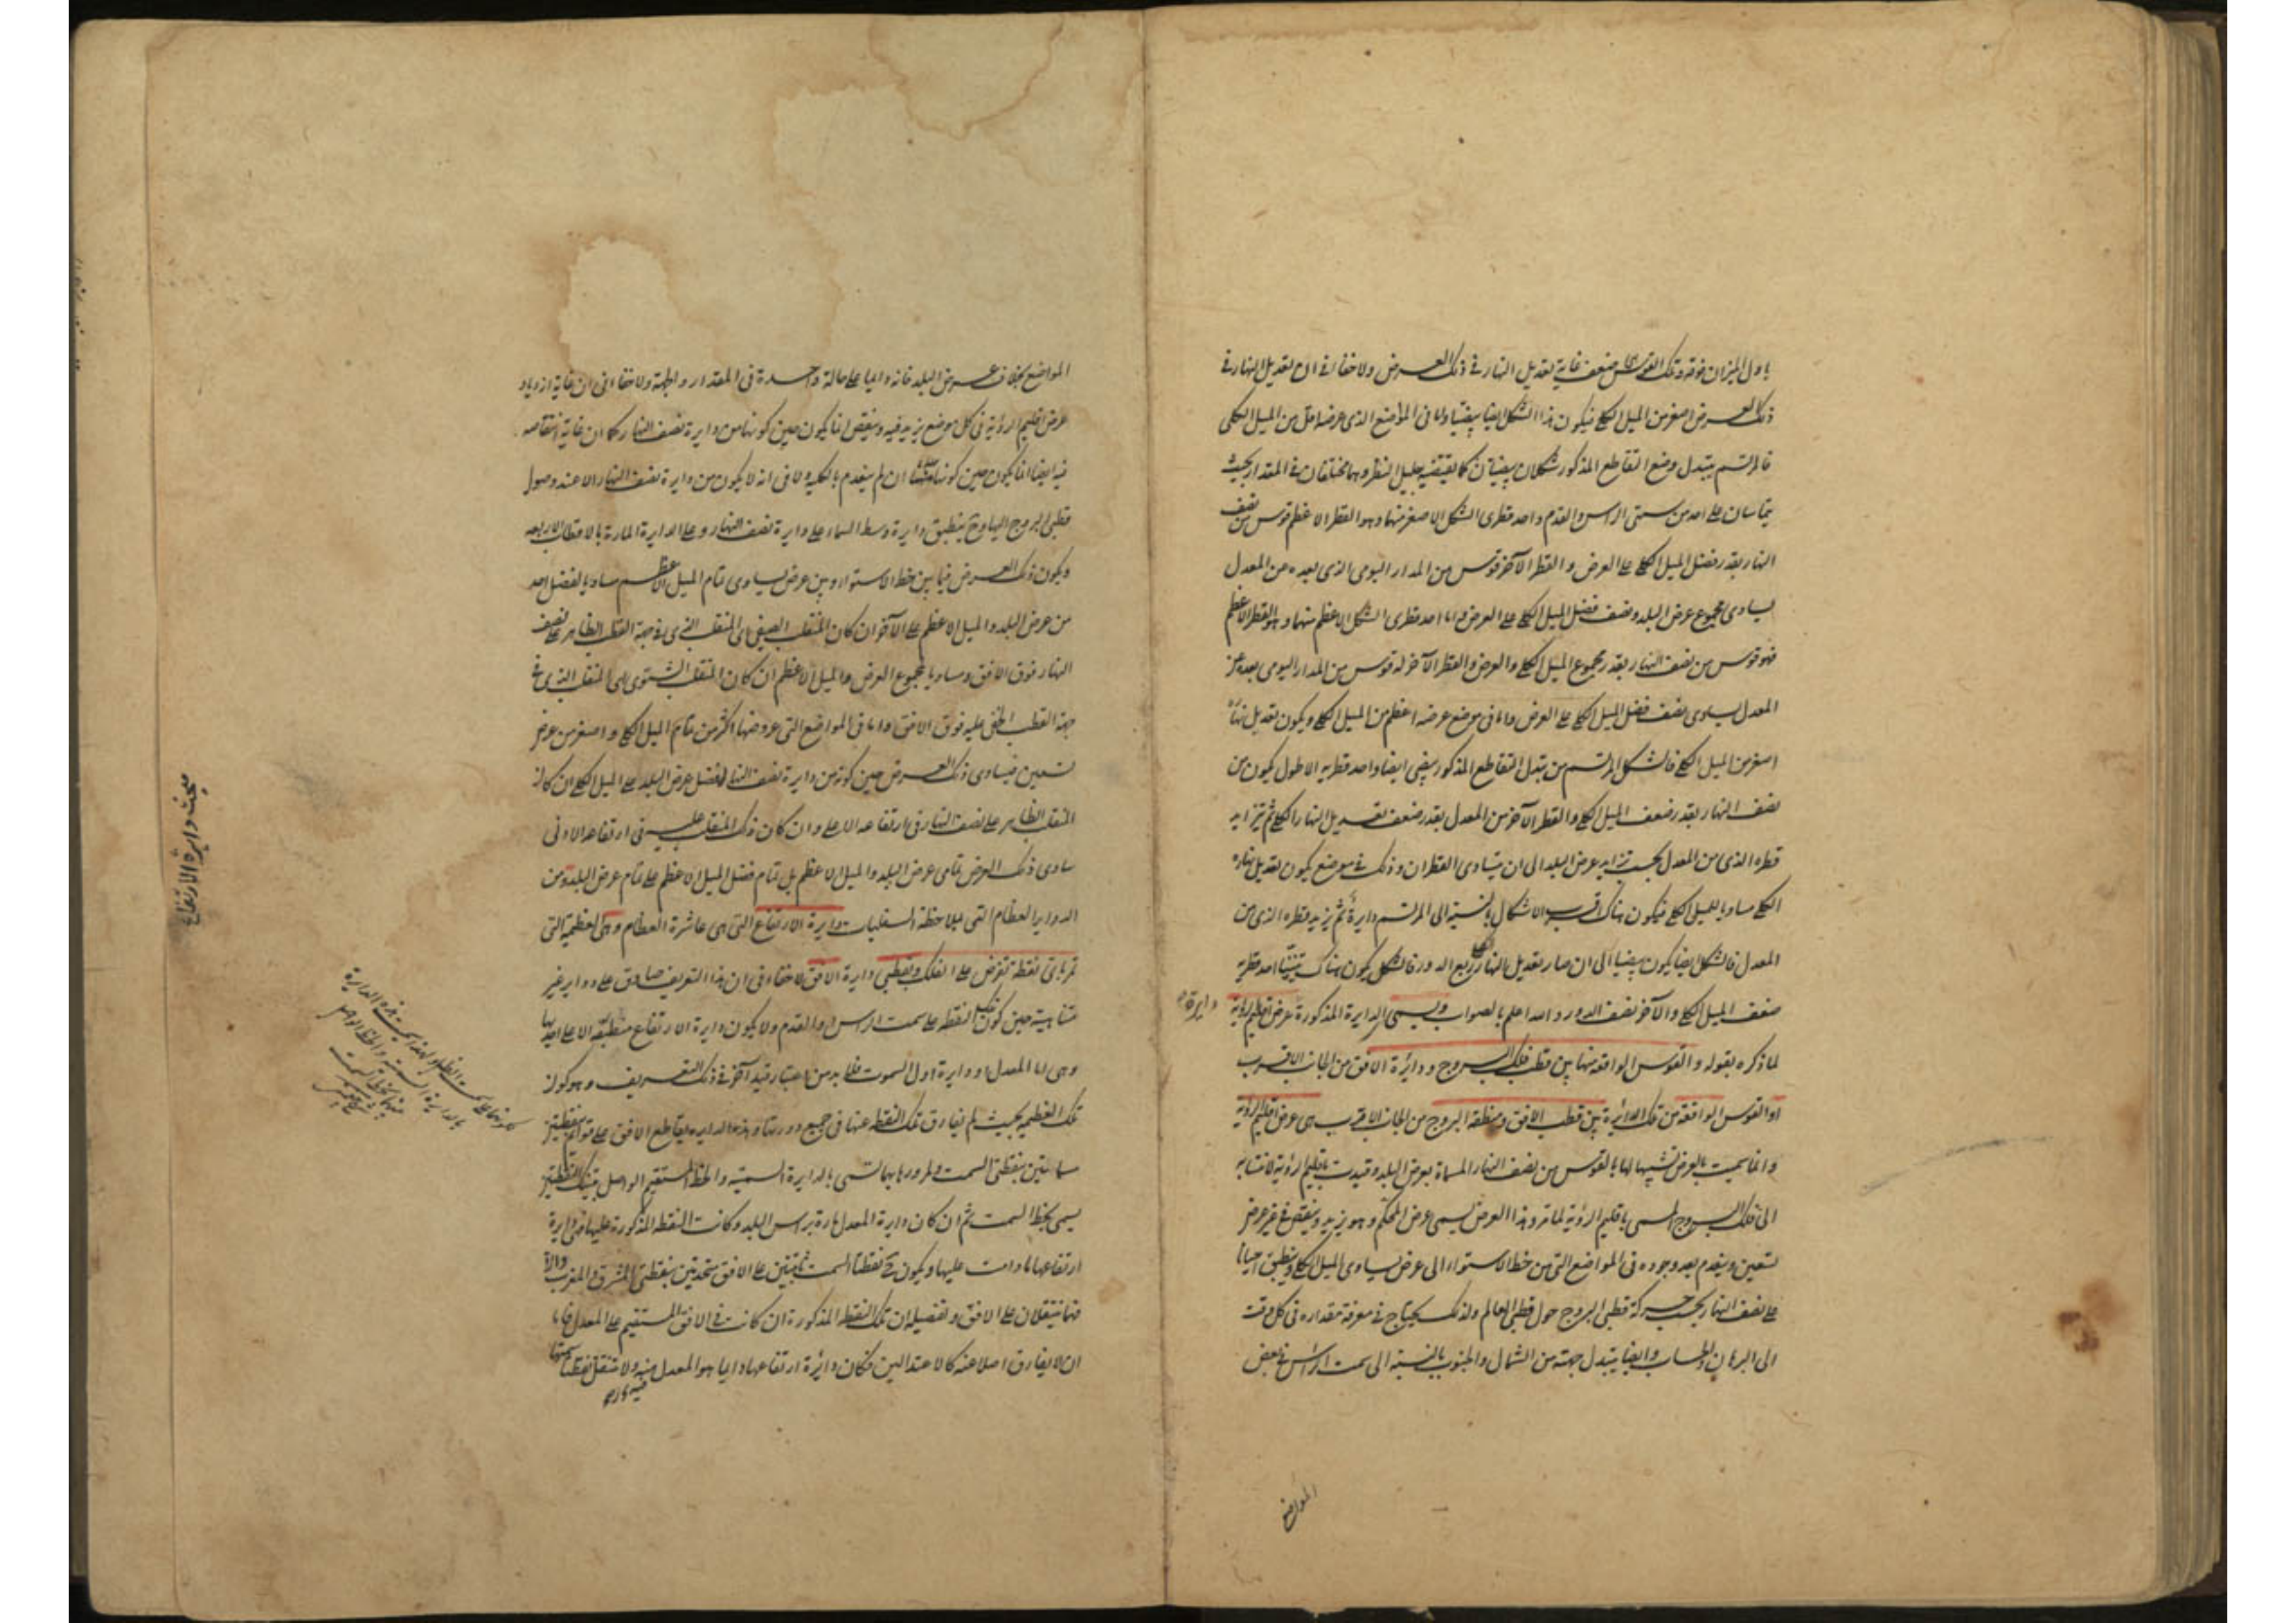 باول الميزان فوقه وتلك القوس ضعف غاية تعديل النهار في ذلك العرض ولا خفاء في ان تعديل النهار في
ذلك العرض اصغر من الميل الكلي فيكون هذا الشكل ايضا بيضيا واما في المواضع الذي عرضه اقل من الميل الكلي
فالمرتسم بتبدل وضع التقاطع المذكور شكلان بيضيان كما يقتضيه جليل النظر وهما مختلفان في المقدار بحيث
يتماسان على احد من سمتي الراس والقدم واحد قطري الشكل الاصغر منهما وهو القطر الاعظم قوس من نصف
النهار بقدر فضل الميل الكلي على العرض والقطر الآخر قوس من المدار اليومي الذي بعده عن المعدل
يساوي مجموع عرض البلد ونصف فضل الميل الكلي على العرض واما احد قطري الشكل الاعظم منهما وهو القطر الاعظم
فهو قوس من نصف النهار بقدر مجموع الميل الكلي والعرض والقطر الآخر له قوس من المدار اليومي بعده عن
المعدل يساوي نصف فضل الميل الكلي على العرض واما في موضع عرضه اعظم من الميل الكلي ويكون تعديل نهاره
اصغر من الميل الكلي فالشكل المرتسم من تبدل التقاطع المذكور بيضي ايضا واحد قطريه الاطول يكون من
نصف النهار بقدر ضعف الميل الكلي والقطر الآخر من المعدل بقدر ضعف تعديل النهار الكلي ثم يتزايد
قطره الذي من المعدل بحسب تزايد عرض البلد الى ان يتساوى القطران وذلك في موضع يكون تعديل نهاره
الكلي مساويا للميل الكلي فيكون هناك اقرب الاشكال بالنسبة الى المرتسم دايرة ثم يزيد قطره الذي من
المعدل فالشكل ايضا يكون بيضيا الى ان صار تعديل النهار الكلي ربع الدور فالشكل يكون هناك احد قطريه
ضعف الميل الكلي والآخر نصف الدور والله اعلم بالصواب ويسمى الدايرة المذكورة دايرة عرض اقليم الرؤية
لما ذكره بقوله والقوس الواقعة منها بين قطب فلك البروج ودائرة الافق من الجانب الاقرب
او القوس الواقعة من تلك الدائرة بين قطب الافق ومنطقة البروج من الجانب الاقرب هي عرض اقليم الرؤية
وانما سميت بالعرض تشبيها لها بالقوس من نصف النهار المسماة بعرض البلد وقيدت باقليم الرؤية لانتسابه
الى فلك البروج المسمى باقليم الرؤية لما مر وهذا العرض يسمى عرض المحكم وهو يزيد وينقص في غير عرض
تسعين وينعدم بعد وجوده في المواضع التي من خط الاستواء الى عرض يساوي الميل الكلي وينطبق احيانا
على نصف النهار بحسب حركة قطبي البروج حول قطبي العالم ولذلك يحتاج في معرفة مقداره في كل وقت
الى البرهان والحساب وايضا يتبدل جهته من الشمال والجنوب بالنسبة الى سمت الراس في بعض
المواضع
المواضع بخلاف عرض البلد فانه دايما على حالة واحدة في المقدار والجهة ولا خفاء في ان غاية ازدياد
عرض اقليم الرؤية في كل موضع يزيد فيه وينقص انما يكون حين كونها من دايرة نصف النهار كما ان غاية انتقاصه
فيه ايضا انما يكون حين كونها ان لم ينعدم بالكلية ولا في انه لا يكون من دايرة نصف النهار الا عند وصول
قطبي البروج اليها وح ينطبق دايرة وسط السماء على دايرة نصف النهار وعلى الدايرة المارة بالاقطاب الاربعة
ويكون ذلك العرض فيما بين خط الاستواء وبين عرض يساوي تمام الميل الاعظم مساويا لفضل احد
من عرض البلد والميل الاعظم على الآخر ان كان المنقلب الصيفي اي المنقلب الذي في جهة القطب الظاهر على نصف
النهار فوق الافق ومساويا لمجموع العرض والميل الاعظم ان كان المنقلب الشتوي اي المنقلب الذي في
جهة القطب الخفي عليه فوق الافق واما في المواضع التي عروضها اكثر من تمام الميل الكلي واصغر من عرض
تسعين فيساوي ذلك العرض حين كونه من دايرة نصف النهار لفضل عرض البلد على الميل الكلي ان كان
المنقلب الظاهر على نصف النهار في ارتفاعه الاعلى وان كان ذلك المنقلب عليه في ارتفاعه الادنى
ساوى ذلك العرض تمامي عرض البلد والميل الاعظم بل تمام فضل الميل الاعظم على تمام عرض البلد ومن
الدواير العظام التي بملاحظة السفليات دايرة الارتفاع التي هي عاشرة العظام وهي العظيمة التي
تمر باي نقطة تفرض على الفلك وبقطبي دايرة الافق لا خفاء في ان هذا التعريف صادق على دواير غير
متناهية حين كون تلك النقطة على سمت الراس او القدم ولا يكون دايرة الارتفاع منطبقة الا على احديها
وهي اما المعدل او دايرة اول السموت فلا بد من اعتبار قيد آخر في ذلك التعريف وهو كون
تلك العظيمة بحيث لم يفارق تلك النقطة عنها في جميع دورتها وهذه الدايرة يقاطع الافق على قوائم بنقطتين
مسماتين بنقطتي السمت ولمرورها بهما تسمى بالدايرة السمتية والخط المستقيم الواصل بين تلك النقطتين
يسمى بخط السمت ثم ان كان دايرة المعدل مارة براس البلد وكانت النقطة المذكورة عليها فدايرة
ارتفاعها ما دامت عليها ويكون ح نقطتا السمت ثابتتين على الافق متحدتين بنقطتي المشرق والمغرب والا
فهما ينتقلان على الافق وتفصيله ان تلك النقطة المذكورة ان كانت في الافق المستقيم على المعدل فاما
ان لا يفارق اصلا عنه كالاعتدالين فكان دائرة ارتفاعها دايما هو المعدل منه ولا تنتقل نقطتا سمتها
مبحث دايرة الارتفاع